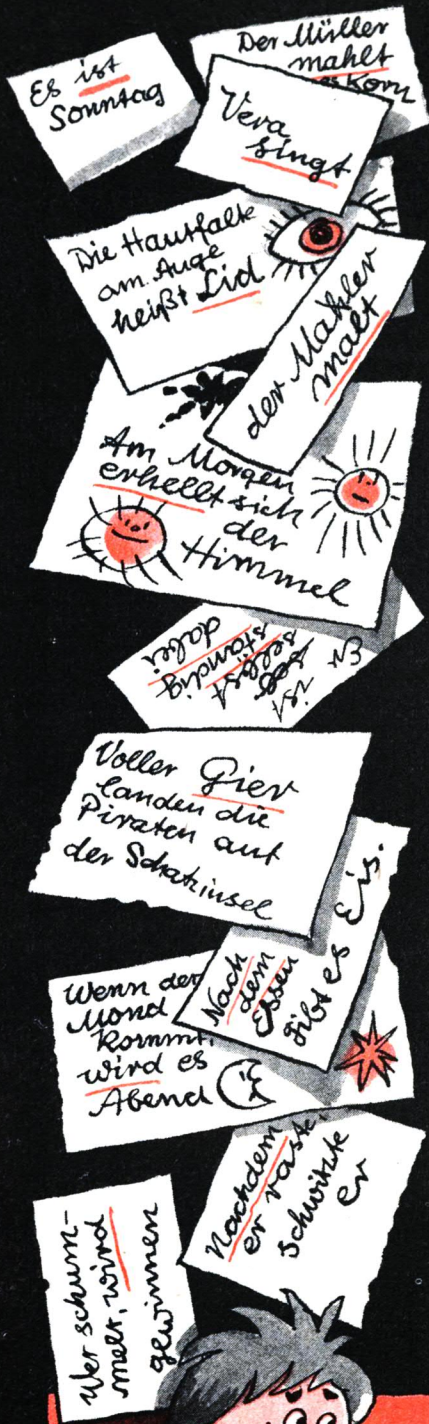 Es ist
Sonntag
Der Müller
mahlt
as Korn
Vera
singt
Die Hautfalte
am Auge
heißt Lid
der Mahler
malt
Am Morgen
erhellt sich
der
Himmel
Er ist
selbst
ständig
dabei
Voller Gier
landen die
Piraten auf
der Schatzinsel
Nach
dem
Essen
gibt es Eis.
Wenn der
Mond
kommt,
wird es
Abend
Nachdem
er raste,
schwitzte
er
Wer schum-
melt, wird
gewinnen